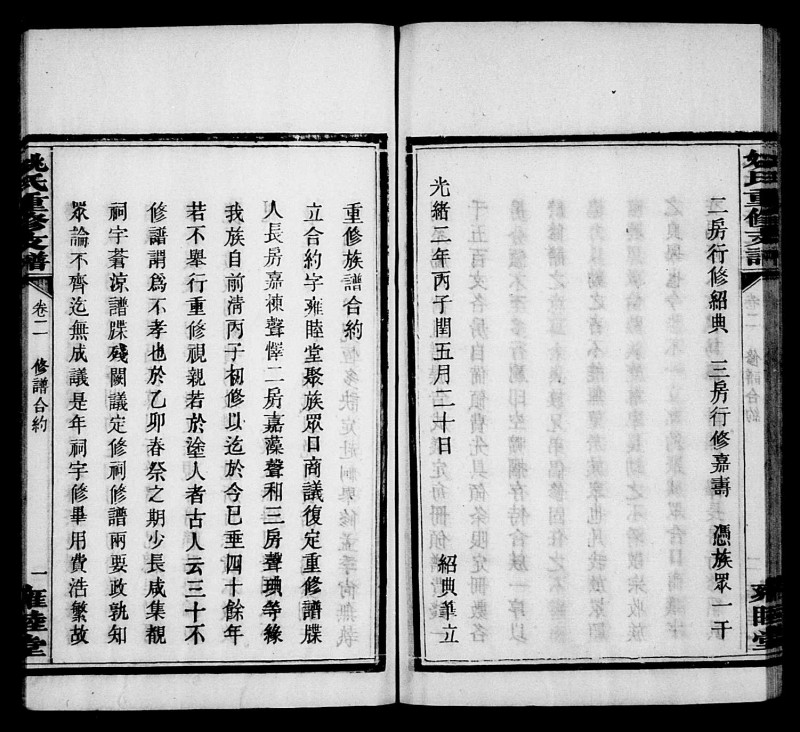 姚氏重修支譜
卷二
修譜合約
雍睦堂
二房行修紹典 三房行修嘉壽 憑族眾一干
光緒二年丙子閏五月二十日 紹典筆立
重修族譜合約
立合約字雍睦堂聚族眾日商議復定重修譜牒
人長房嘉棟聲懌二房嘉藻聲和三房聲璵等緣
我族自前清丙子初修以迄於今已垂四十餘年
若不舉行重修視親若於塗人者古人云三十不
修譜謂爲不孝也於乙卯春祭之期少長咸集覩
祠宇蒼涼譜牒殘闕議定修祠修譜兩要政孰知
眾論不齊迄無成議是年祠宇修畢用費浩繁故
姚氏重修支譜
卷二
修譜合約
一
雍睦堂